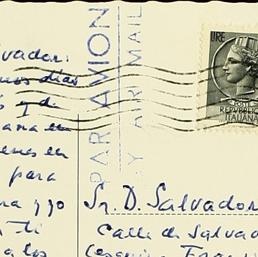 Salvador:
unos días
s y de
ana en
enes en
para
na y yo
ti
a los
PAR AVION
BY AIR MAIL
LIRE
POSTE
REPUBBLICA
ITALIANA
Sr. D. Salvador
Calle de Salvado